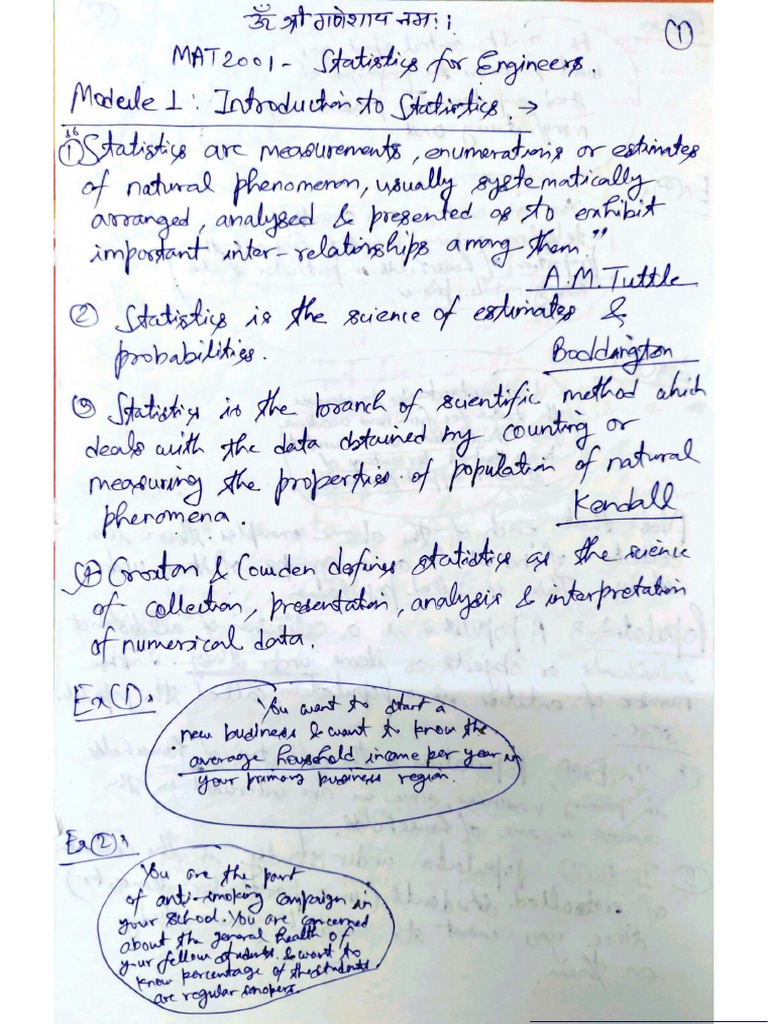 ॐ श्री गणेशाय नमः।
①
MAT2001 - Statistics for Engineers.
Module 1: Introduction to Statistics. →
① Statistics are measurements, enumerations or estimates
of natural phenomenon, usually systematically
arranged, analysed & presented as to exhibit
important inter-relationships among them."
A.M. Tuttle
② Statistics is the science of estimates &
probabilities.
Boddington
③ Statistics is the branch of scientific method which
deals with the data obtained by counting or
measuring the properties of population of natural
phenomena.
Kendall
④ Croxton & Cowden defines statistics as the science
of collection, presentation, analysis & interpretation
of numerical data.
Ex①:
You want to start a
new business & want to know the
average household income per year in
your primary business region.
Ex②:
You are the part
of anti-smoking campaign in
your school. You are concerned
about the general health of
your fellow students & want to
know percentage of the students
are regular smokers.